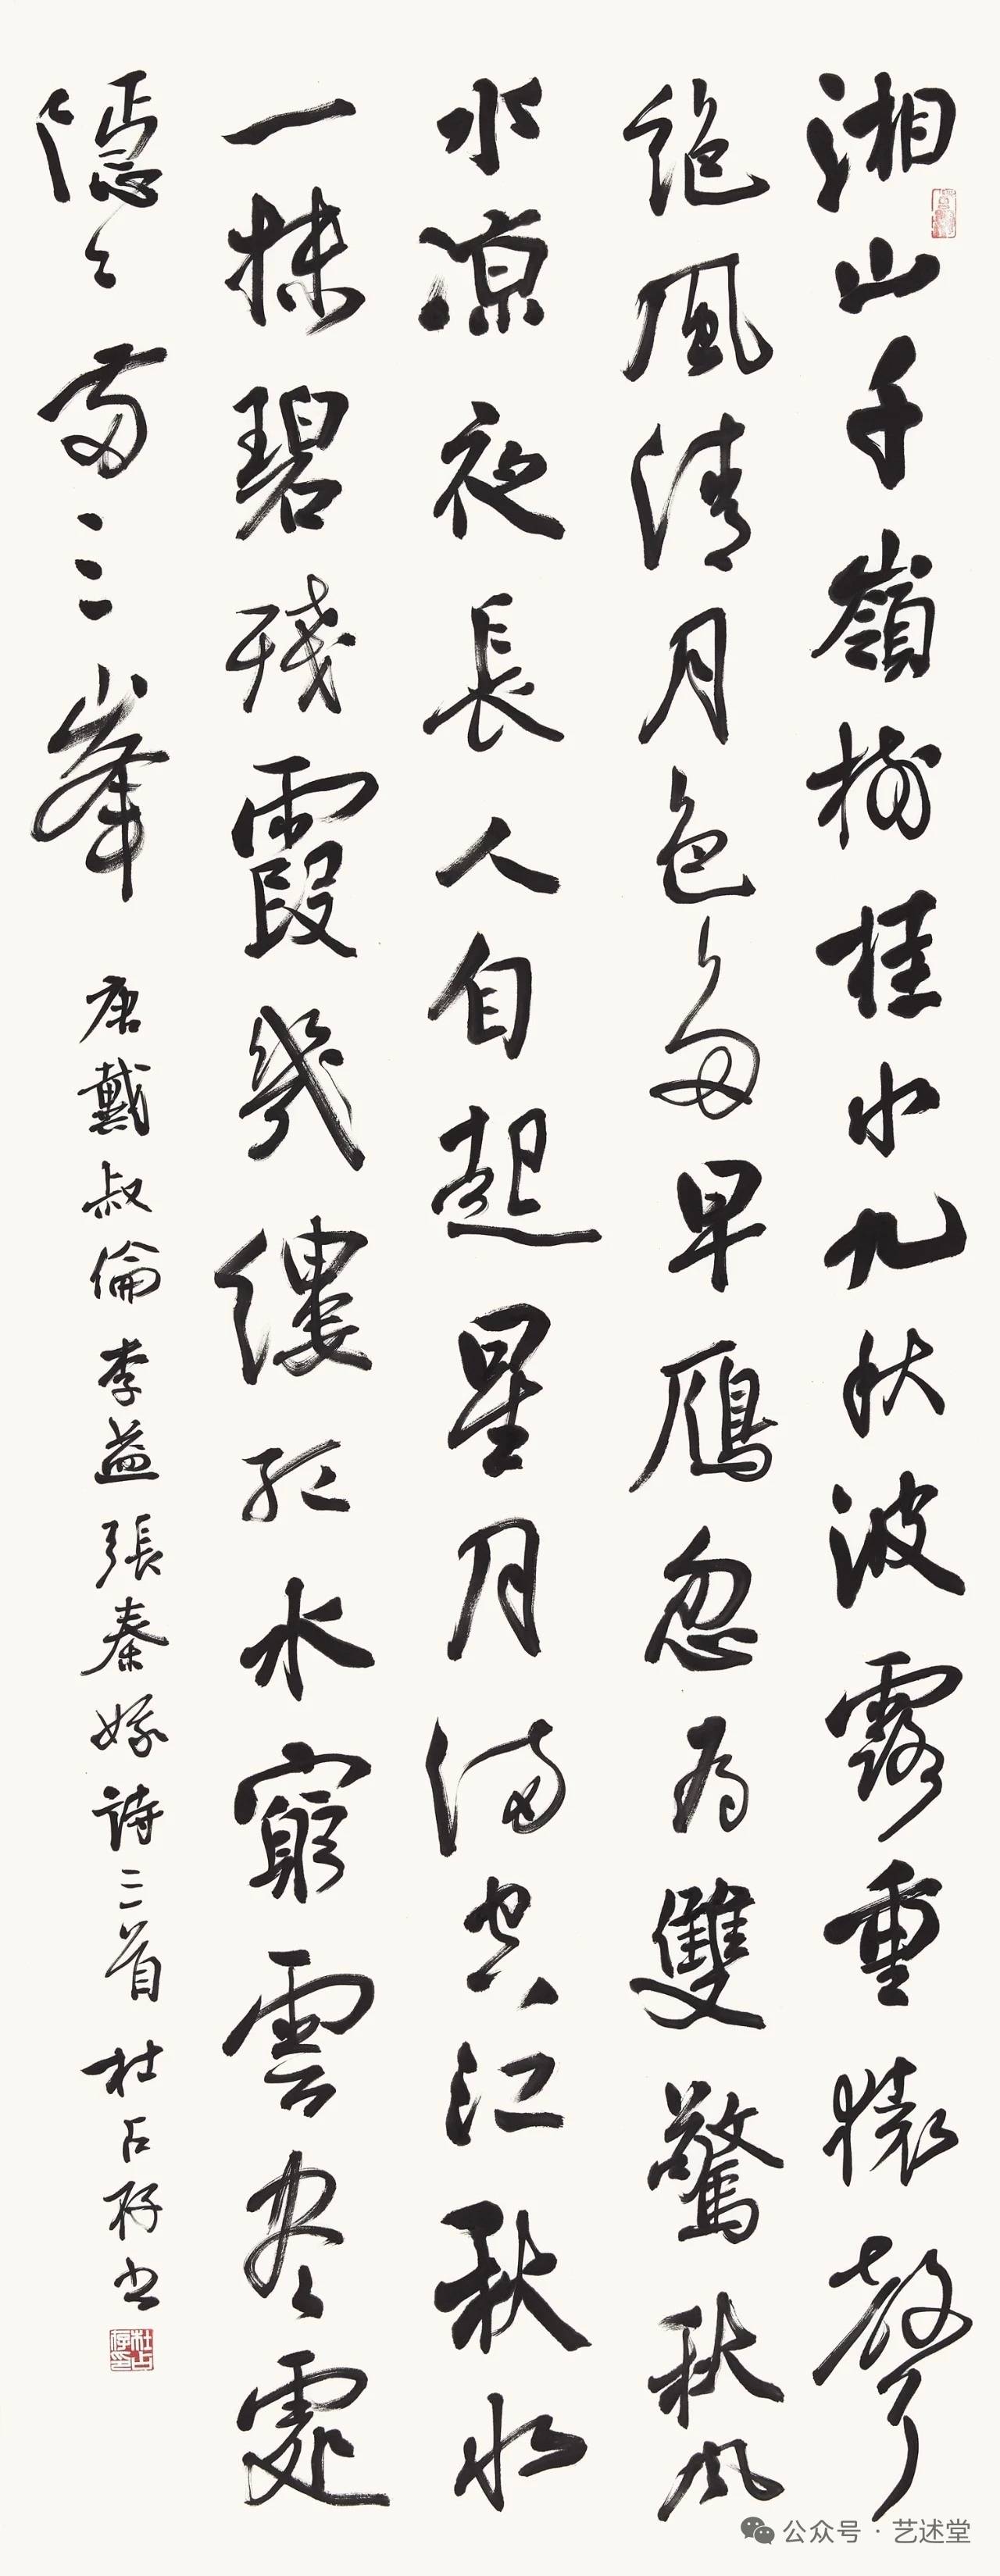 湘山千嶺樹桂水九秋波露重猿聲
絕風清月色多早鴈忽為雙驚秋風
水涼夜長人自起星月滿空江秋水
一抹碧殘霞幾縷紅水窮雲盡處
隱々兩三峯
唐戴叔倫李益張秦娥詩三首 杜占存書
杜占存印
公众号 · 艺述堂